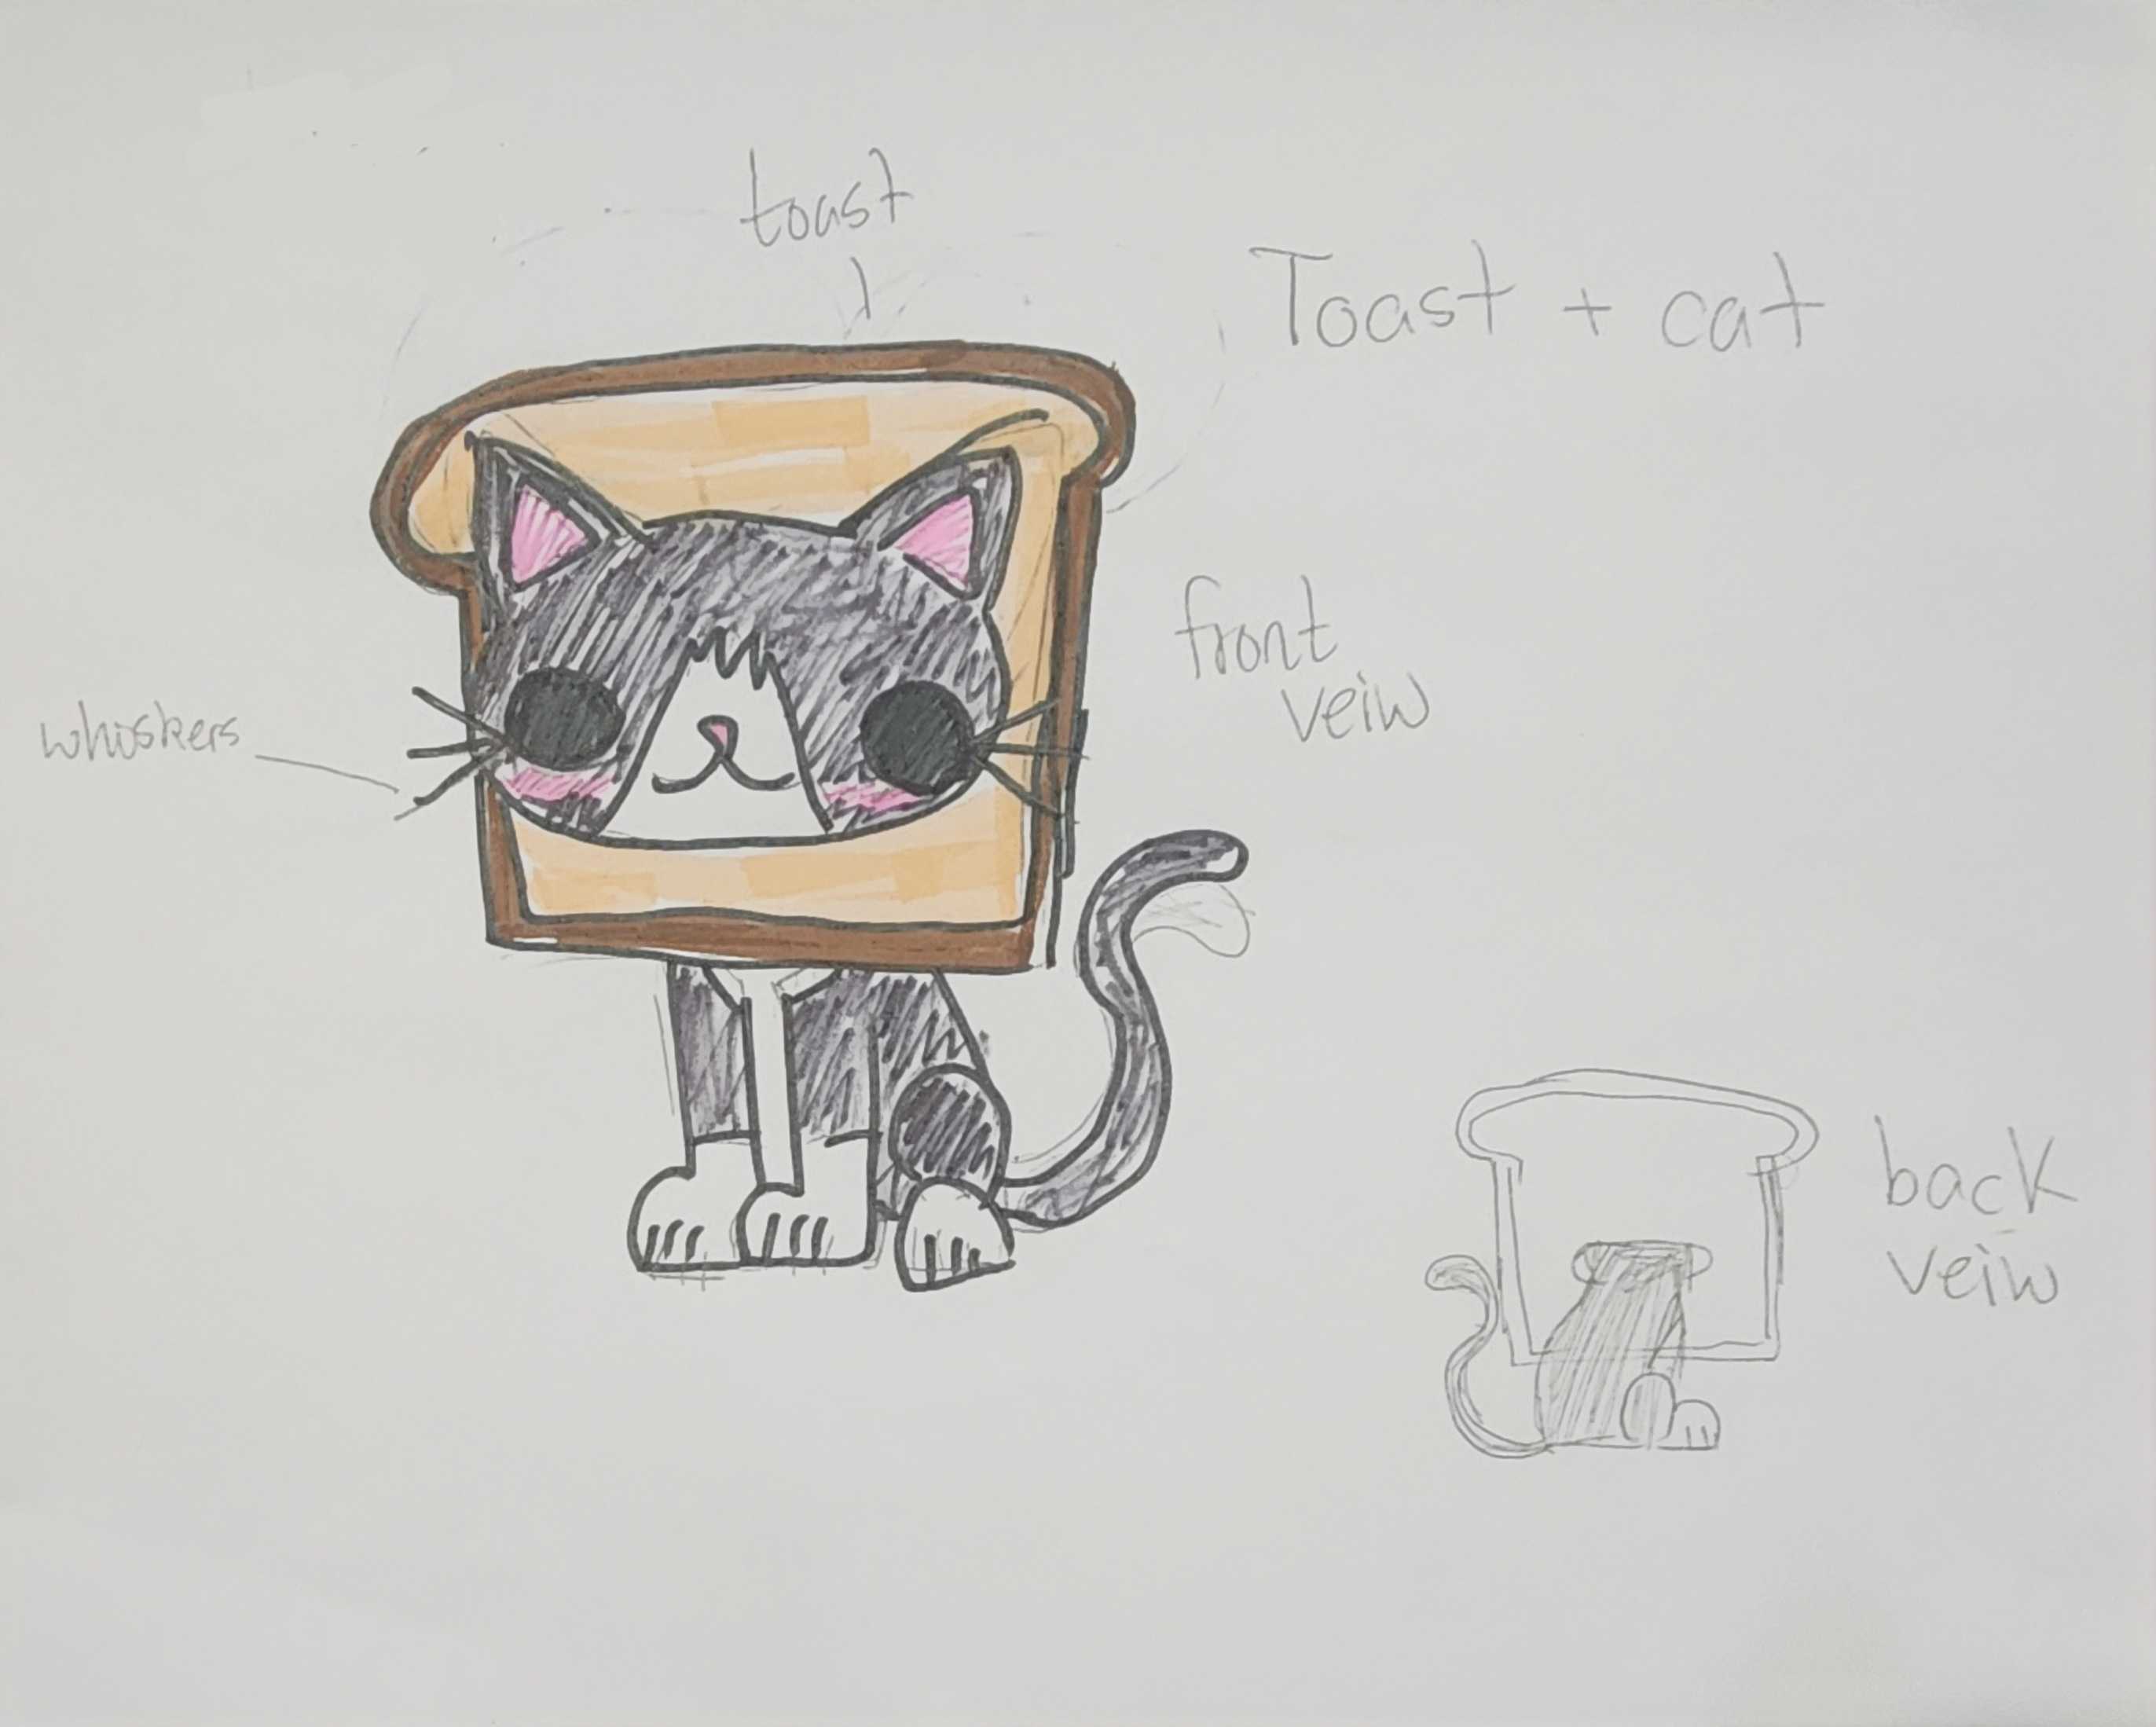 toast
Toast + cat
front
veiw
whiskers
back
veiw